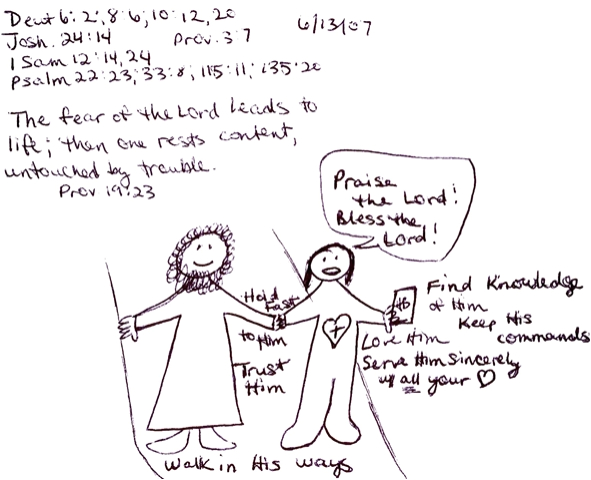 Deut 6:2; 8:6; 10:12, 20
6/13/07
Josh. 24:14 Prov. 3:7
1 Sam 12:14, 24
Psalm 22:23; 33:8; 115:11; 135:20
The fear of the Lord leads to
life; then one rests content,
untouched by trouble.
Prov 19:23
Praise
the Lord!
Bless the
Lord!
Hold
Fast
to Him
Trust
Him
Find Knowledge
of Him
Keep His
commands
Love Him
Serve Him sincerely
w/ all your ♡
Walk in His ways